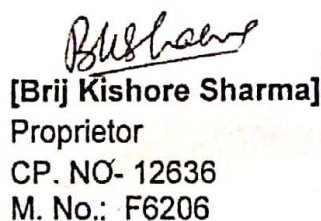 [Brij Kishore Sharma]
Proprietor
CP. NO- 12636
M. No.: F6206